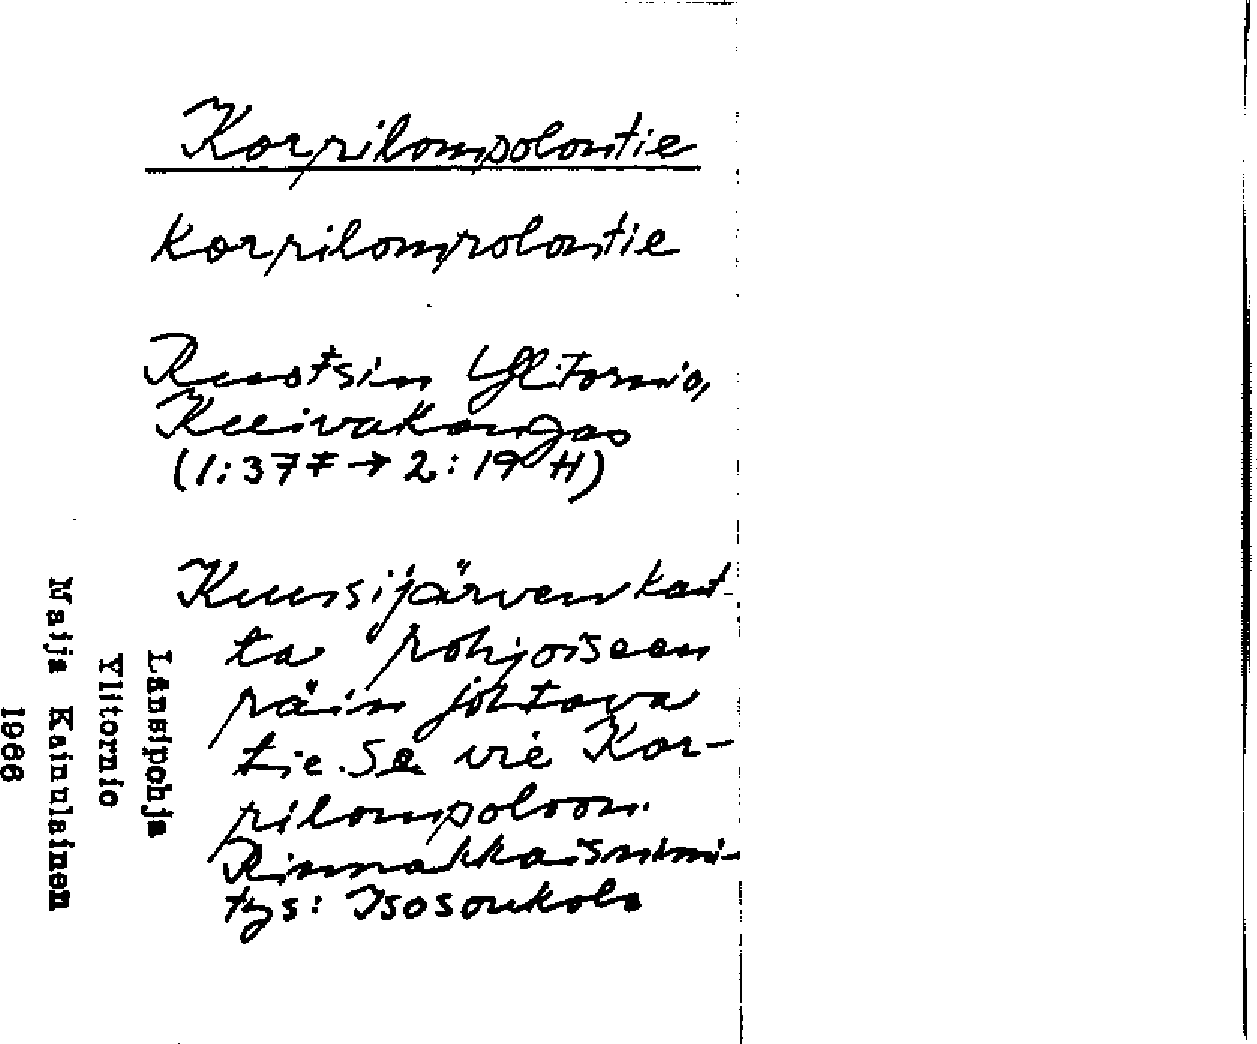 Korpilompolontie
korpilompolontie
Ruotsin Ylitornio,
Kuivakangas
(1:37 F → 2:19 H)
Kuusijärven kaut-
ta pohjoiseen
päin johtava
tie. Se vie Kor-
pilompoloon.
Rinnakkaisnimi-
tys: Isosoukola
Länsipohja
Ylitornio
Maija Kainulainen
1966